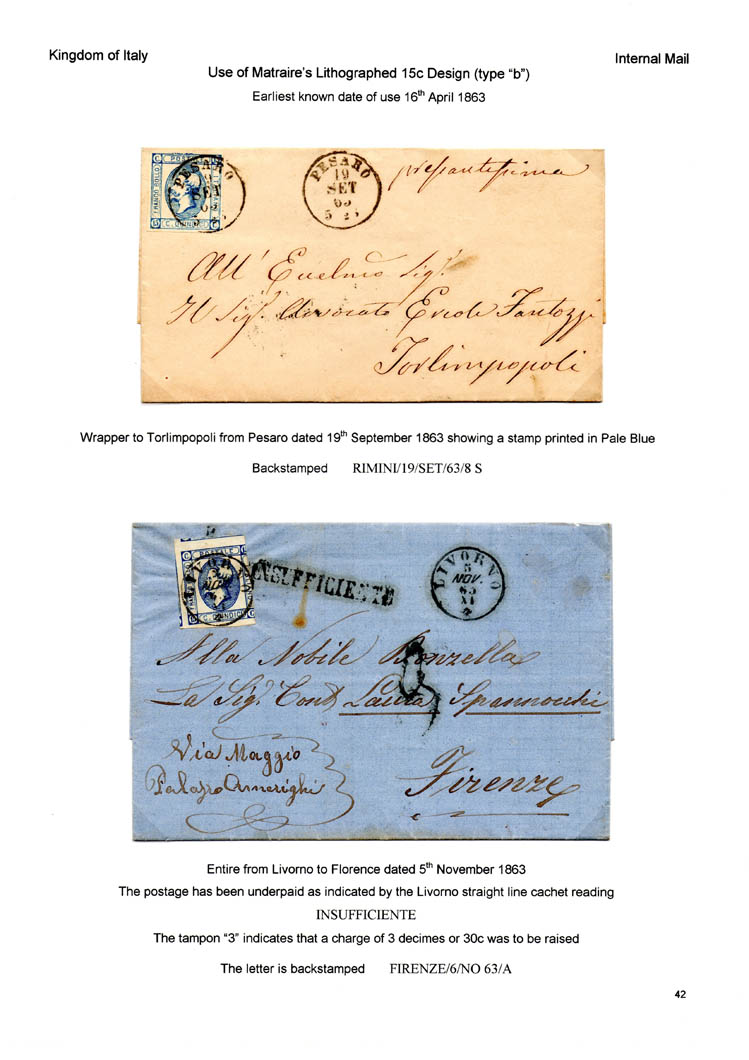 Kingdom of Italy
Internal Mail
Use of Matraire's Lithographed 15c Design (type "b")
Earliest known date of use 16th April 1863
PESARO
SET
FRANCO BOLLO
PESARO
19
SET
63
5
pressantissima
All'
Il Sigr. Avvocato Ercole Fantozzi
Forlimpopoli
Wrapper to Torlimpopoli from Pesaro dated 19th September 1863 showing a stamp printed in Pale Blue
Backstamped RIMINI/19/SET/63/8 S
POSTALE
LIVORNO
C. QUINDICI
INSUFFICIENTE
LIVORNO
5
NOV.
63
XI
3
Alla Nobile Donzella
La Sigra Contsa Laura Spannocchi
Via Maggio
Palazzo Amerighi
Firenze
Entire from Livorno to Florence dated 5th November 1863
The postage has been underpaid as indicated by the Livorno straight line cachet reading
INSUFFICIENTE
The tampon "3" indicates that a charge of 3 decimes or 30c was to be raised
The letter is backstamped FIRENZE/6/NO 63/A
42